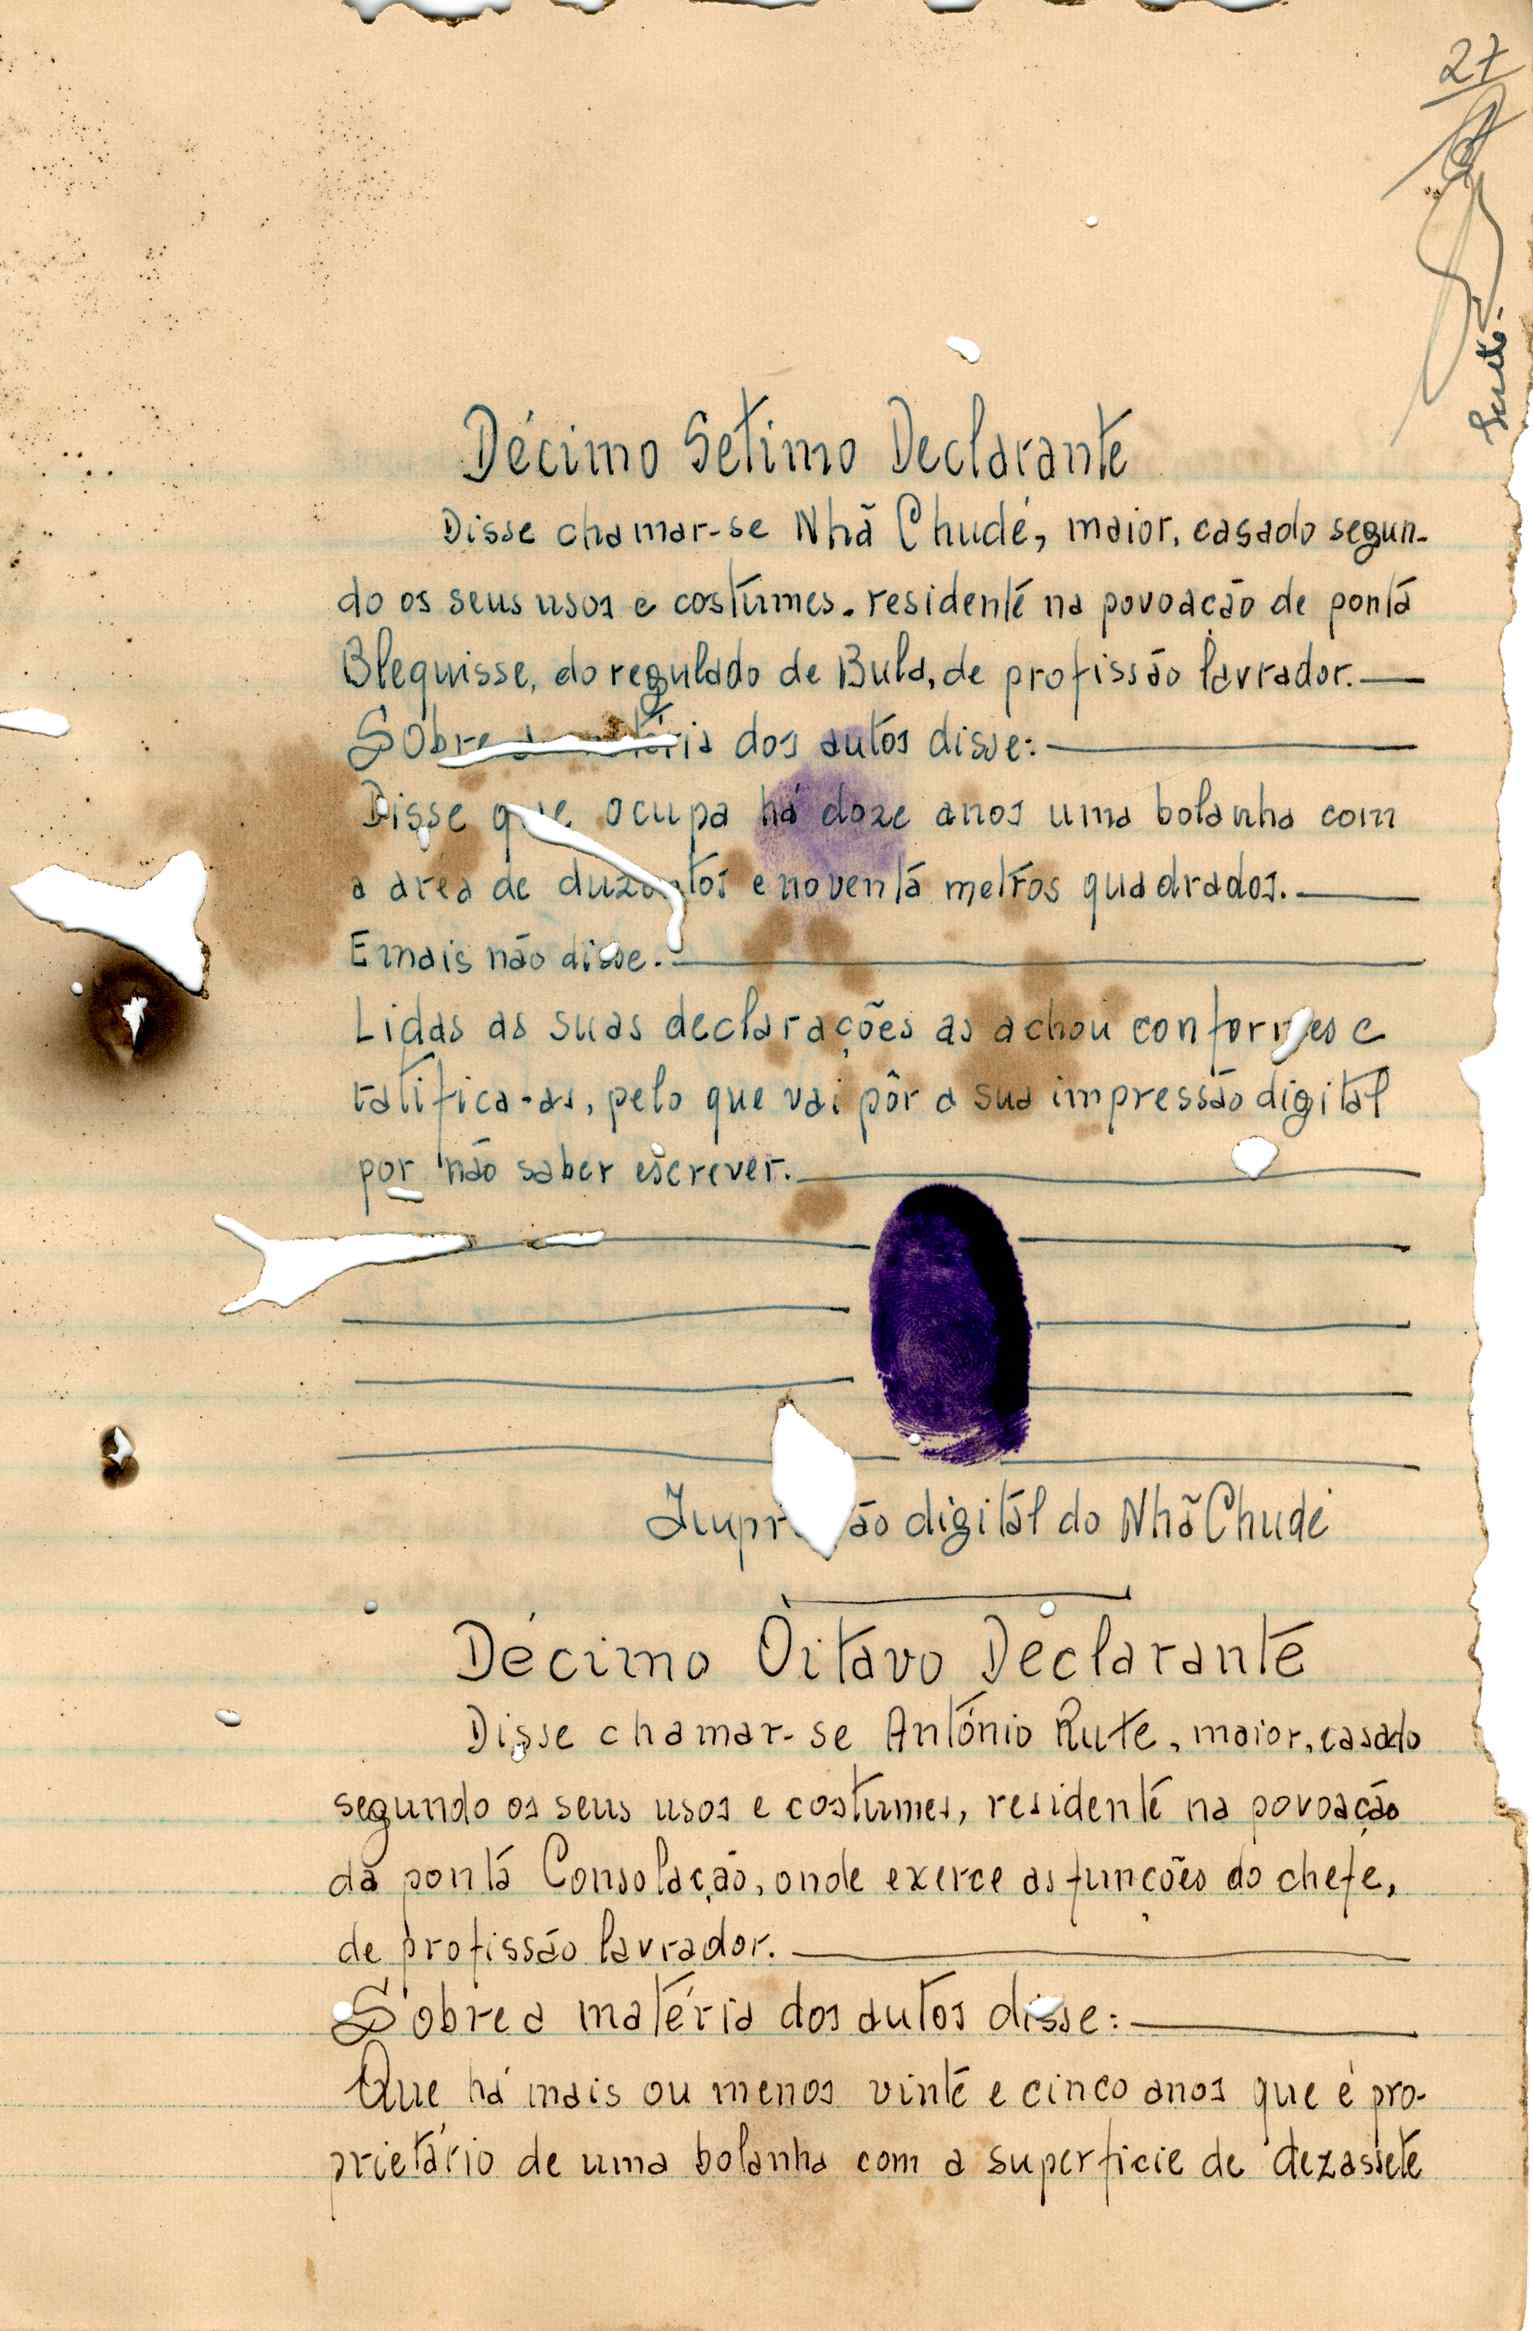 27
Décimo Setimo Declarante
Disse chamar-se Nhã Chudé, maior, casado segun-
do os seus usos e costumes. residente na povoação de ponta
Blequisse, do regulado de Bula, de profissão lavrador.
Sobre a matéria dos autos disse:
Disse que ocupa há doze anos uma bolanha com
a area de duzentos e noventa metros quadrados.
E mais não disse.
Lidas as suas declarações as achou conformes e
ratifica-as, pelo que vai pôr a sua impressão digital
por não saber escrever.
Impressão digital do Nhã Chudé
Décimo Oitavo Declarante
Disse chamar-se António Rute, maior, casado
segundo os seus usos e costumes, residente na povoação
da ponta Consolação, onde exerce as funções do chefe,
de profissão lavrador.
Sobre a matéria dos autos disse:
Que há mais ou menos vinte e cinco anos que é pro-
prietário de uma bolanha com a superficie de dezassete